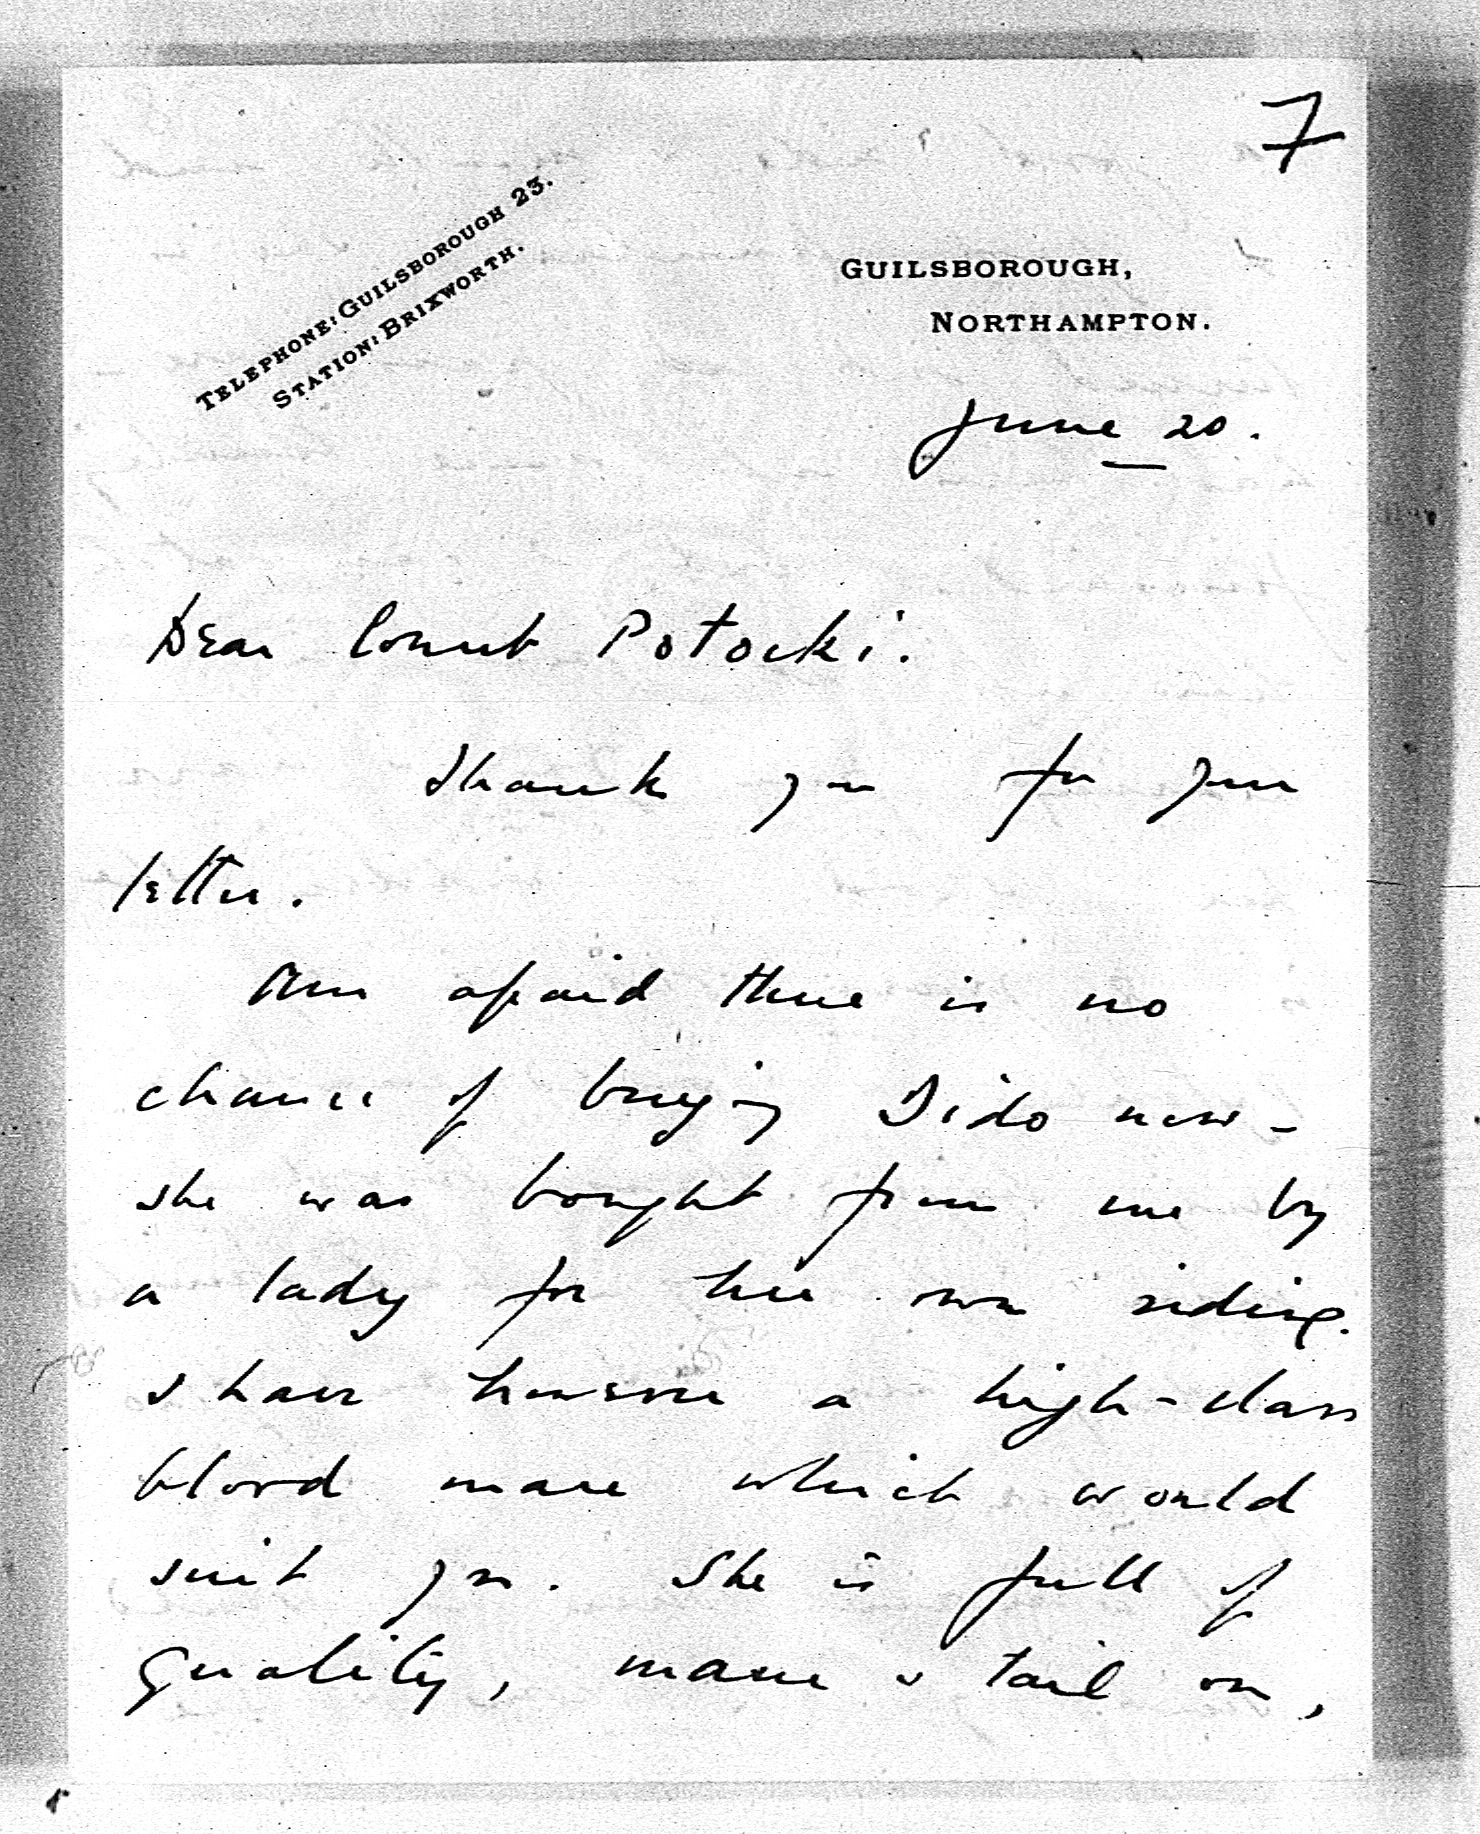 7
TELEPHONE: GUILSBOROUGH 23.
STATION: BRIXWORTH.
GUILSBOROUGH,
NORTHAMPTON.
June 20.
Dear Count Potocki.
Thank you for your
letter.
Am afraid there is no
chance of buying Dido now -
she was bought from me by
a lady for her own riding.
I have however a high-class
blood mare which would
suit you. She is full of
Quality, mane & tail on,